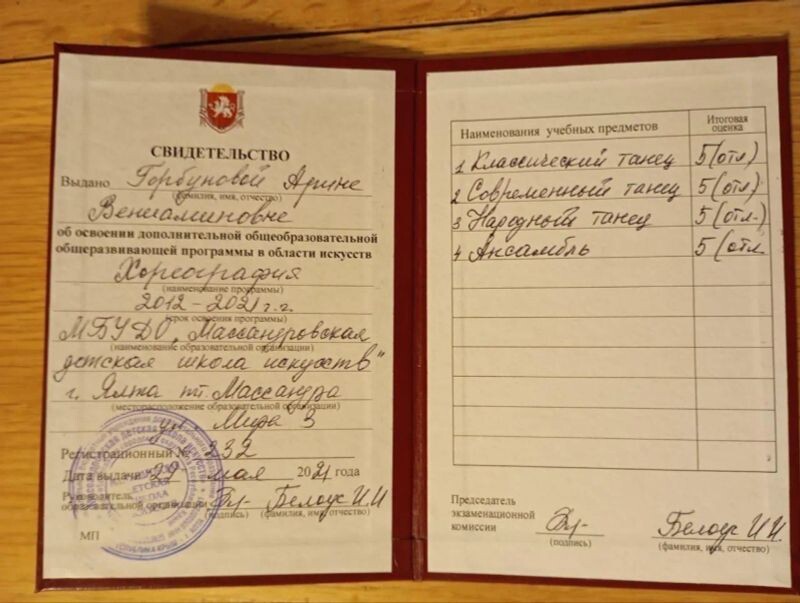 СВИДЕТЕЛЬСТВО
Выдано Горбуновой Арине
(фамилия, имя, отчество)
Вениаминовне
об освоении дополнительной общеобразовательной
общеразвивающей программы в области искусств
Хореография
(наименование программы)
2012 - 2021 г.г.
(срок освоения программы)
МБУ ДО "Массандровская
(наименование образовательной организации)
детская школа искусств"
г. Ялта пгт. Массандра
(месторасположение образовательной организации)
ул. Мира 3
Регистрационный № 232
Дата выдачи мая 2021 года
Руководитель
образовательной организации Белоус И.И
(подпись) (фамилия, имя, отчество)
МП
Наименования учебных предметов
Итоговая
оценка
1 Классический танец 5 (отл)
2 Современный танец 5 (отл)
3 Народный танец 5 (отл.)
4 Ансамбль 5 (отл
Председатель
экзаменационной
комиссии Белоус И.И.
(подпись) (фамилия, имя, отчество)